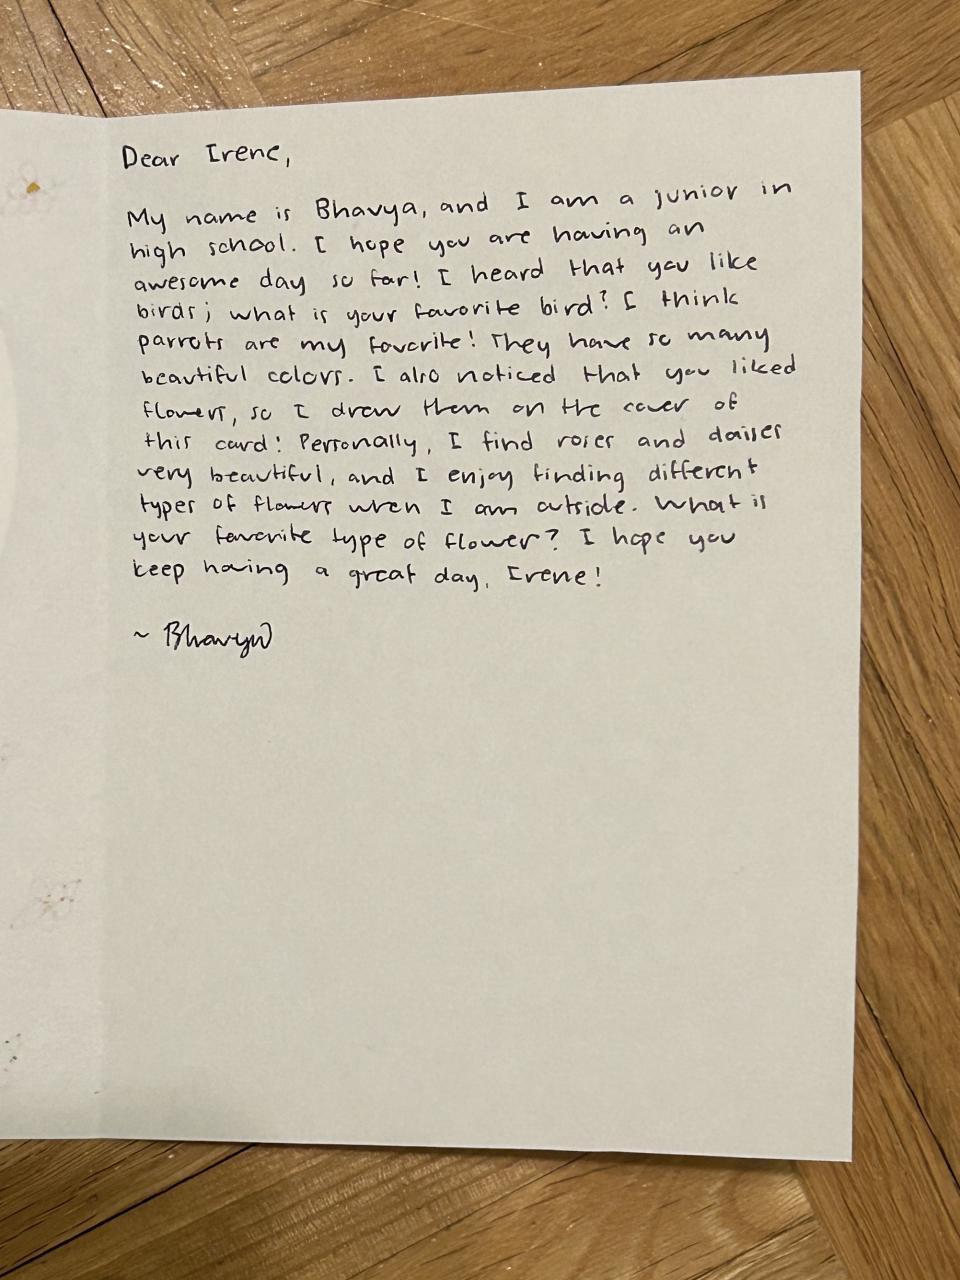 Dear Irene,
My name is Bhavya, and I am a junior in
high school. I hope you are having an
awesome day so far! I heard that you like
birds; what is your favorite bird? I think
parrots are my favorite! They have so many
beautiful colors. I also noticed that you liked
flowers, so I drew them on the cover of
this card! Personally, I find roses and daisies
very beautiful, and I enjoy finding different
types of flowers when I am outside. What is
your favorite type of flower? I hope you
keep having a great day, Irene!
~ Bhavya